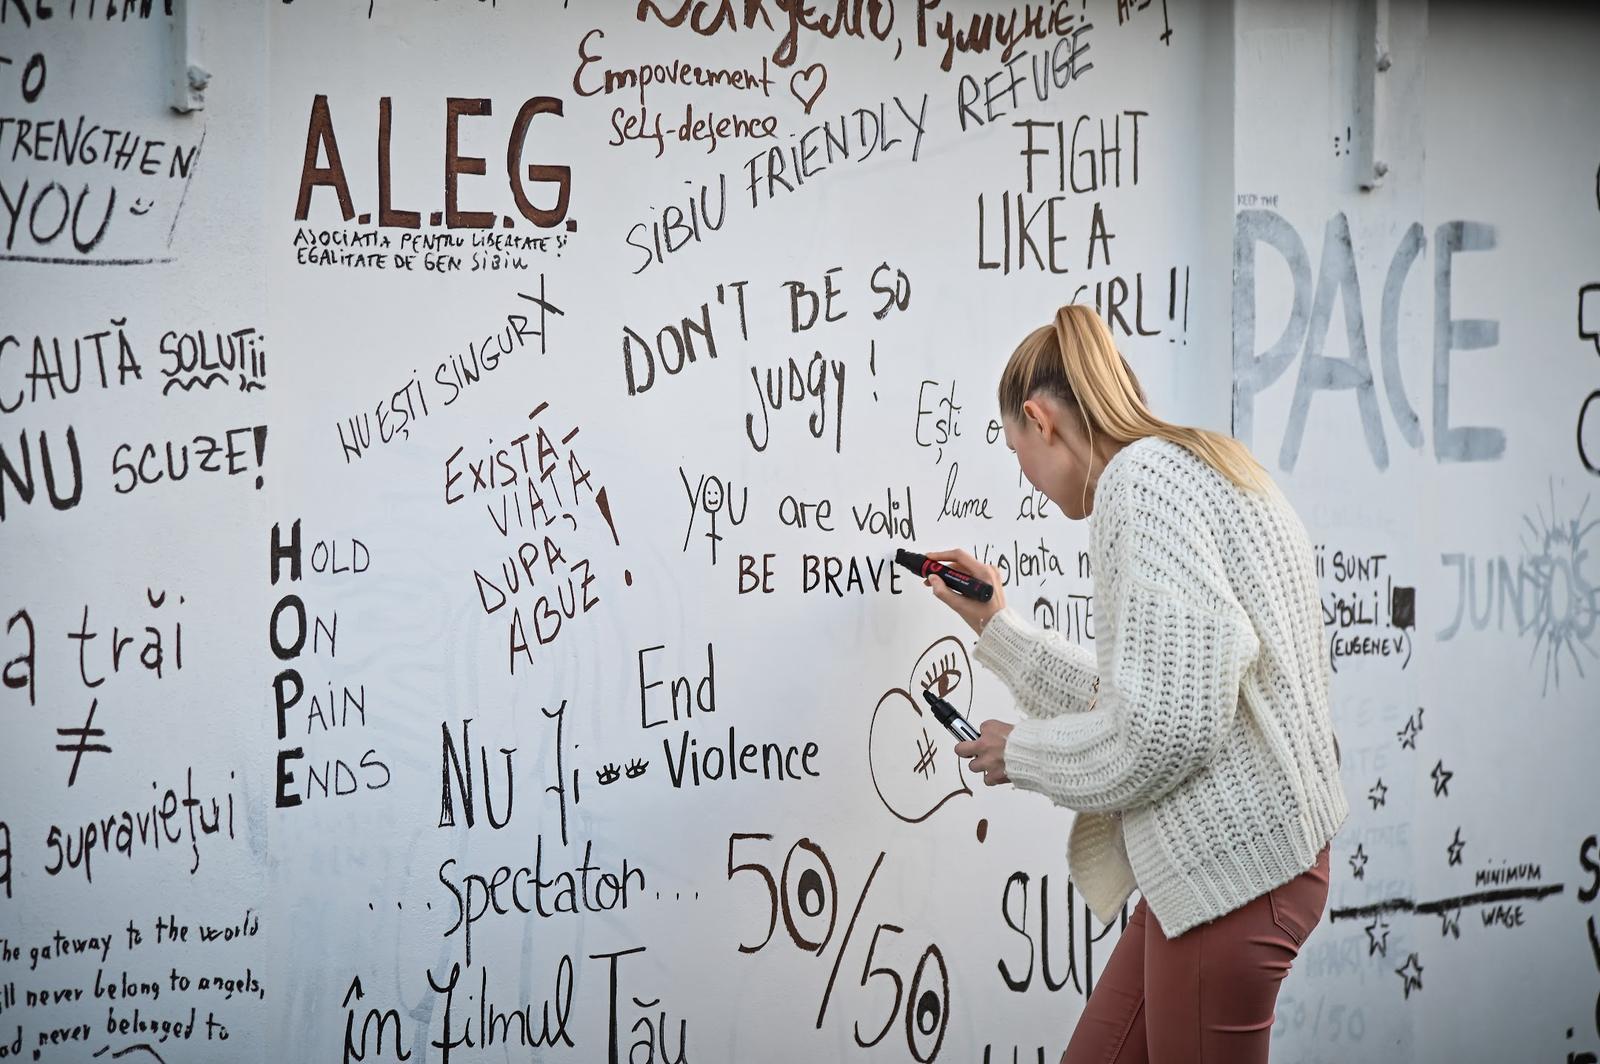 TO
STRENGTHEN
YOU
CAUTĂ SOLUȚII
NU SCUZE!
a trăi
≠
a supraviețui
The gateway to the world
ll never belong to angels,
never belonged to
A.L.E.G.
ASOCIATIA PENTRU LIBERTATE ȘI
EGALITATE DE GEN SIBIU
NU EȘTI SINGURX
EXISTĂ
VIAȚĂ
DUPA
ABUZ!
HOLD
ON
PAIN
ENDS
Дякуємо, Румуніє!
Empoverment ♡
Self-defence
SIBIU FRIENDLY REFUGE
FIGHT
LIKE A
GIRL!!
DON'T BE SO
JUDGY!
YOU are valid
BE BRAVE
Ești o
lume de
Violența n
PUTE
End
Violence
NU fi
...Spectator...
în filmul Tău
50/50
#
SUP
KEEP THE
PACE
II SUNT
(EUGENE V.)
JUNTOS
MINIMUM
WAGE
50/50